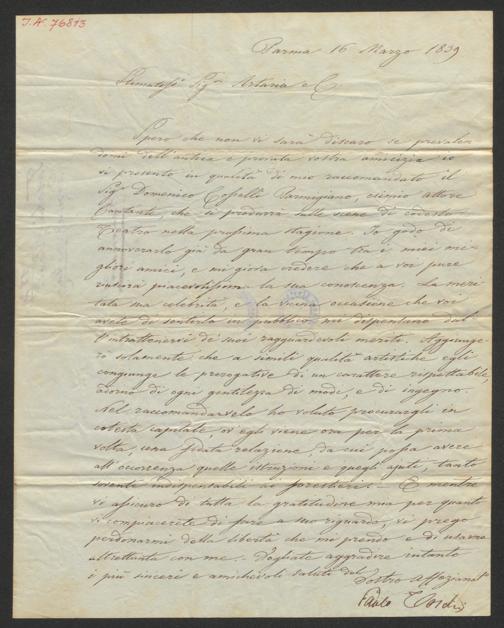 I.N. 76813
Parma 16 Marzo 1839
Stimatisʳ Sigⁿ Artaria e C.
Spero che non vi sarà discaro se prevalen
domi dell'antica e provata vostra amicizia io
vi presento in qualità di mio raccomandato il
Sigʳ Domenico Parmigiano, esimio attore
Cantante, che si produrrà sulle scene di codesto
Teatro nella prossima stagione. Io godo di
annoverarlo già da gran tempo tra i miei mi
gliori amici, e mi giova credere che a voi pure
riuscirà piacevolissima la sua conoscenza. La meri
tata sua celebrità, e la vicina occasione che voi
avete di sentirlo in pubblico, mi dispensano dall'
intrattenervi de' suoi ragguardevoli meriti. Aggiunge
rò solamente che a simili qualità artistiche egli
congiunge le prerogative di un carattere rispettabile,
adorno di ogni gentilezza di modi, e di ingegno.
Nel raccomandarvelo ho voluto procurargli in
cotesta capitale, ov'egli viene ora per la prima
volta, una fidata relazione, da cui possa avere
all'occorrenza quelle istruzioni e quegli ajuti, tanto
sovente indispensabili ai forestieri. E mentre
vi assicuro di tutta la gratitudine mia per quanto
vi compiacerete di fare a suo riguardo, vi prego
perdonarmi della libertà che mi prendo e di usarne
altrettanta con me. Vogliate aggradire intanto
i più sinceri e amichevoli saluti del Vostro Affezionatᵒ
Paolo